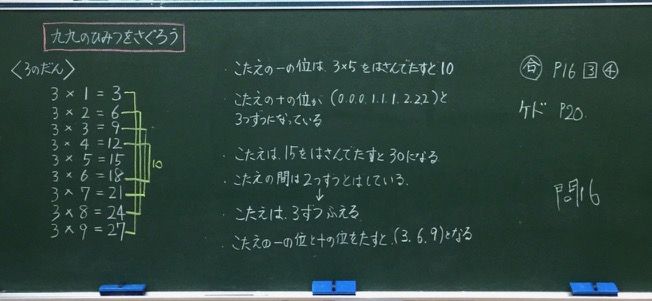 九九のひみつをさぐろう
〈3のだん〉
3×1=3
3×2=6
3×3=9
3×4=12
3×5=15
3×6=18
3×7=21
3×8=24
3×9=27
10
・こたえの一の位は、3×5をはさんでたすと10
・こたえの十の位が(0.0.0.1.1.1.2.2.2)と
3つずつになっている
・こたえは、15をはさんでたすと30になる
・こたえの間は2つずつとばしている
↓
こたえは、3ずつふえる
・こたえの一の位と十の位をたすと、(3.6.9)となる
合 P16 3 4
ケド P20.
問16